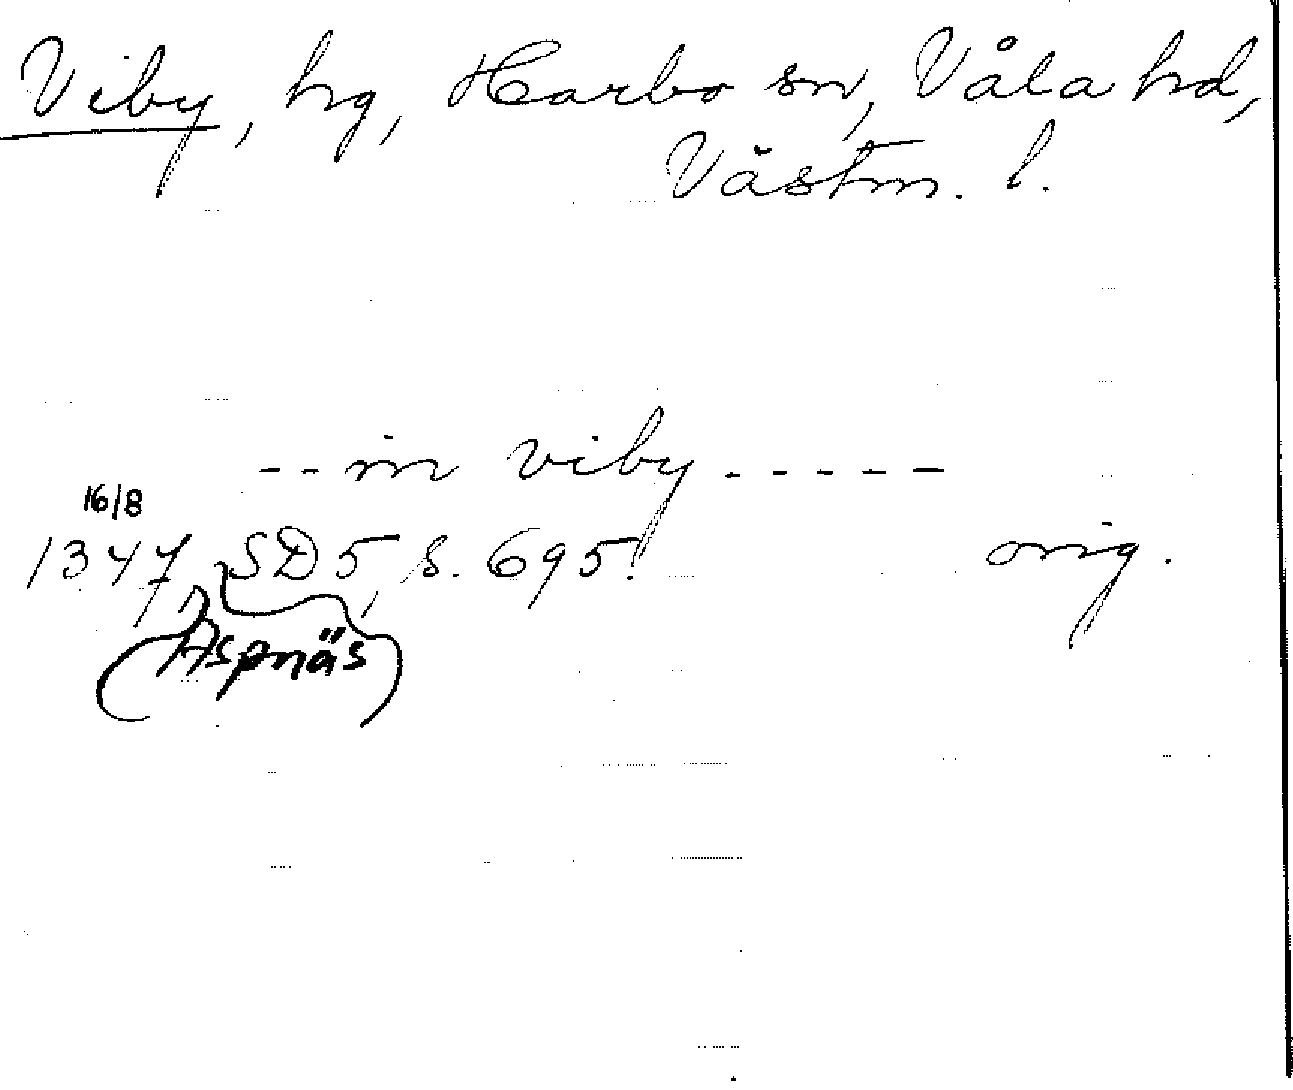 Viby, hg, Harbo sn, Våla hd,
Västm. l.
--in viby-----
16/8
1347, SD 5, s. 695. orig.
(Aspnäs)